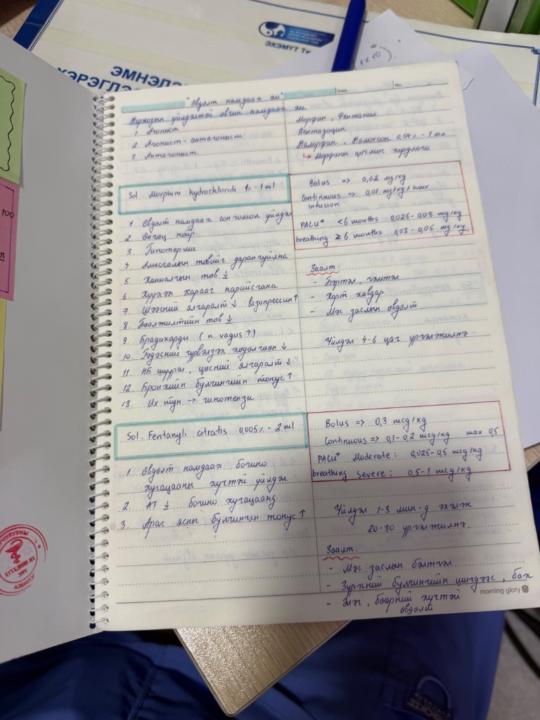 ЭХЭМҮТ Төв
ЭМНЭЛ
ХЭРЭГЛЭ
"Өвдөлт намдаах эм"
Наркозын үйлдэлтэй өвчин намдаах эм
1. Агонист
2. Агонист-антагонист
3. Антагонист
Морфин, Фентанил
Пентазоцин
Налорфин, Налоксон 0,04% - 1 ml
Sol. Morphini hydrochloridi 1% - 1 ml
1. Өвдөлт намдаах сонгомол үйлдэл
2. Өнгөц нойр
3. Гипотерми
4. Амьсгалын төвийг дарангуйлна
5. Ханиалгын төв ↓
6. Хүүхэн хараа нарийсгана
7. Шээсний ялгаралт ↓ вазопрессин ↑
8. Бөөлжилтийн төв ↓
9. Брадикарди (n. vagus ↑)
10. Гэдэсний гүрвэлзэх хөдөлгөөн ↓
11. НБ шүүрэл, цөсний ялгаралт ↓
12. Бронхийн булчингийн тонус ↑
13. Их тун → гипотензи
Bolus => 0,02 mg/kg
Continuous => 0,01 mg/kg/hour
infusion
PACU* <6 months 0,025-0,03 mg/kg
breathing ≥6 months 0,03-0,05 mg/kg
Заалт:
- Бэртэл, гэмтэл
- Хорт хавдар
- Мэс заслын өвдөлт
Үйлдэл 4-6 цаг үргэлжилнэ.
Sol. Fentanyli citratis 0,005% - 2 ml
1. Өвдөлт намдаах богино
хугацааны хүчтэй үйлдэл
2. АТ ↓ богино хугацаанд
3. Араг ясны булчингийн тонус ↑
Bolus => 0,3 mcg/kg
Continuous => 0,1-0,2 mcg/kg max 0,5
PACU* Moderate: 0,025-0,5 mcg/kg
breathing Severe: 0,5-1 mcg/kg
Үйлдэл 1-3 мин-д эхэлж
20-30 үргэлжилнэ.
Заалт:
- Мэс заслын бэлтгэл
- Зүрхний булчингийн шигдээс, бах
- Элэг, бөөрний хүчтэй
өвдөлт
morning glory
too